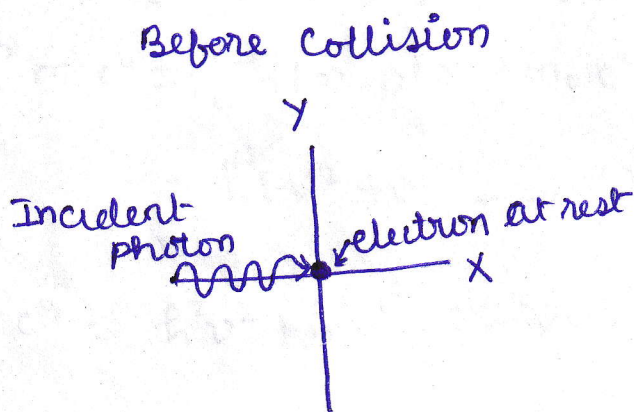 Before Collision
Y
Incident
photon
electron at rest
X